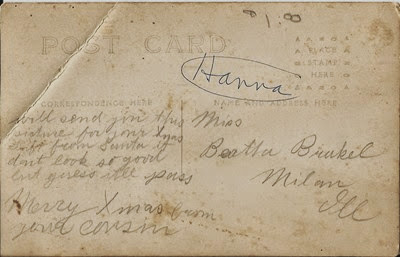 8.1
POST CARD.
PLACE
STAMP
HERE
Hanna
CORRESPONDENCE HERE
NAME AND ADDRESS HERE
will send you this
picture for your Xmas
Gift from Santa it
dont look so good
but guess itll pass
Merry Xmas from
your cousin
Miss
Bertha Brukel
Milan
Ill